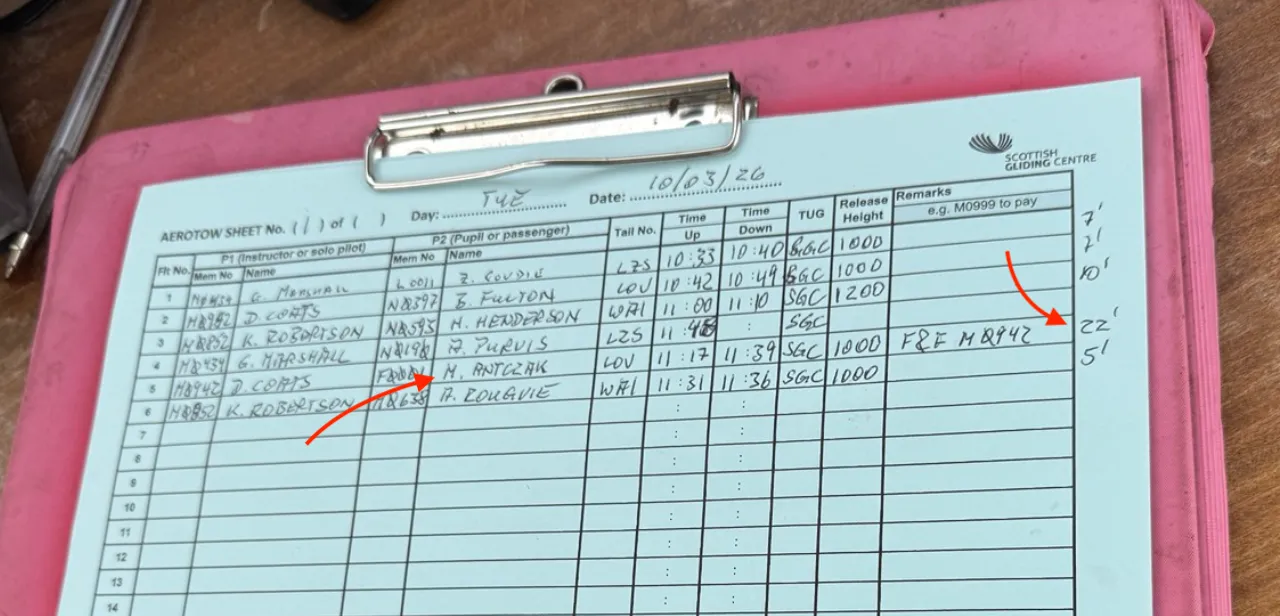 SCOTTISH
GLIDING CENTRE
AEROTOW SHEET No. ( 1 ) of ( ) Day: TUE Date: 10/03/26
Flt No. P1 (Instructor or solo pilot) P2 (Pupil or passenger) Tail No. Time Up Time Down TUG Release Height Remarks
Mem No Name Mem No Name e.g. M0999 to pay
1 G. MARSHALL LZS 10:33 10:40 SGC 1000 7'
2 D. COATS NØ397 FULTON LOV 10:42 10:49 SGC 1000 7'
3 K. ROBERTSON NØ595 H. HENDERSON WA1 11:00 11:10 SGC 1200 10'
4 MØ434 G. MARSHALL NØ198 A. PURVIS LZS : SGC
5 MØ942 D. COATS M. ANTCZAK LOV 11:17 11:39 SGC 1000 F&F MØ942 22'
6 MØ852 K. ROBERTSON MØ638 WA1 11:31 11:36 SGC 1000 5'
7 : :
8 : :
9 : :
10 : :
11 : :
12 : :
13 : :
14